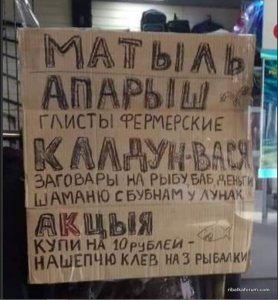 МАТЫЛЬ
АПАРЫШ
ГЛИСТЫ ФЕРМЕРСКИЕ
КАЛДУН-ВАСЯ
ЗАГОВАРЫ НА РЫБУ, БАБ, ДЕНЬГИ
ШАМАНЮ С БУБНАМ У ЛУНАК
АКЦЫЯ
КУПИ НА 10 РУБЛЕЙ -
НАШЕПЧЮ КЛЕВ НА 3 РЫБАЛКИ
ribalkaforum.com